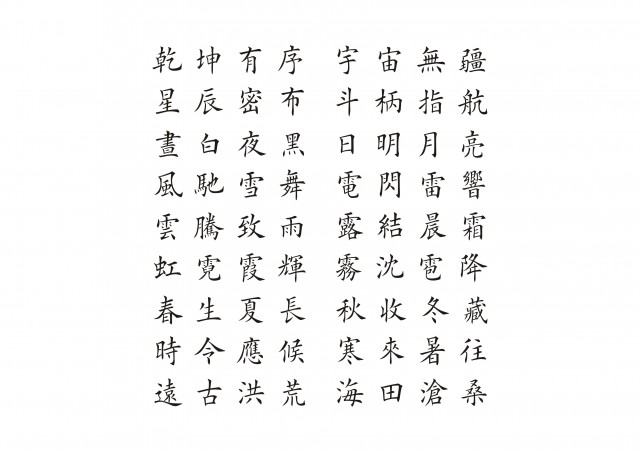 乾坤有序 宇宙無疆
星辰密布 斗柄指航
晝白夜黑 日明月亮
風馳雪舞 電閃雷響
雲騰致雨 露結晨霜
虹霓霞輝 霧沈雹降
春生夏長 秋收冬藏
時令應候 寒來暑往
遠古洪荒 海田滄桑